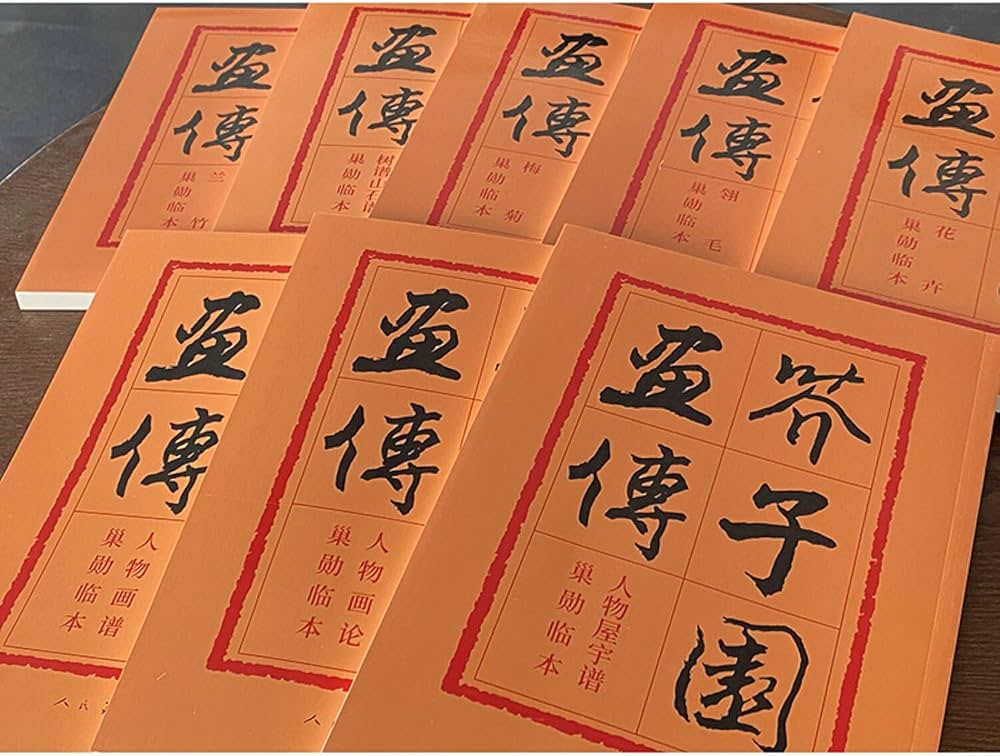 畫傳
兰竹
巢勋临本
畫傳
树谱山石谱
巢勋临本
畫傳
梅菊
巢勋临本
畫傳
翎毛
巢勋临本
畫傳
花卉
巢勋临本
畫傳
人物画谱
巢勋临本
人民
畫傳
人物画论
巢勋临本
人
芥子園
畫傳
人物屋宇谱
巢勋临本